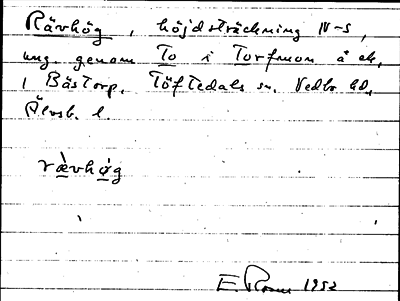 Rävhög, höjdsträckning N-S,
ung. genom To i Torfmon å ek.
1 Bästorp. Töftedals sn. Vedbo hd.
Älvsb. l.
rævhøg
E. 1952